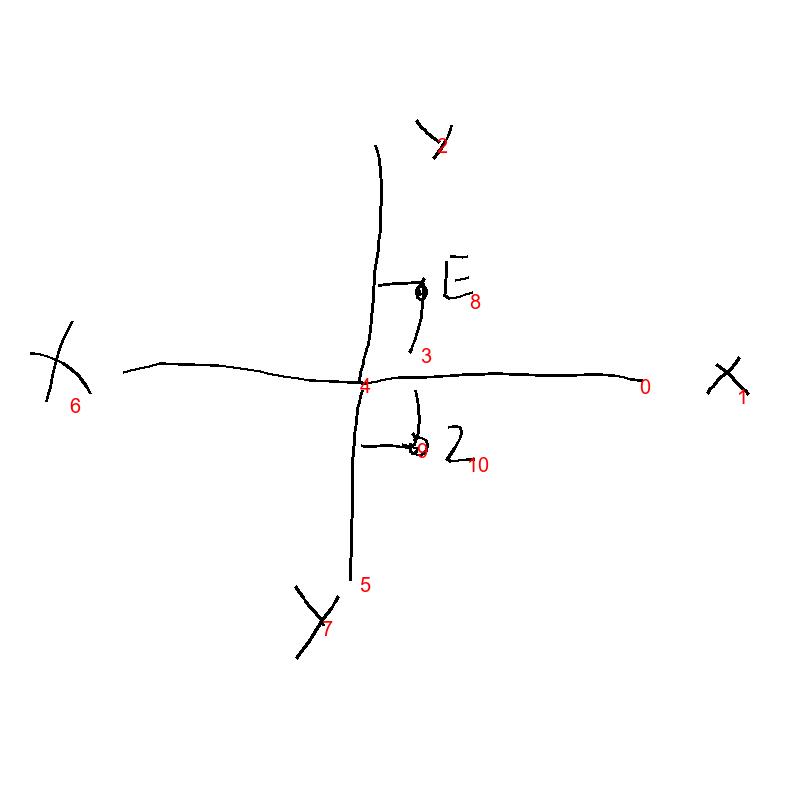 Y
2
E
8
3
X
4
0
X
1
6
9
Z
10
5
Y
7